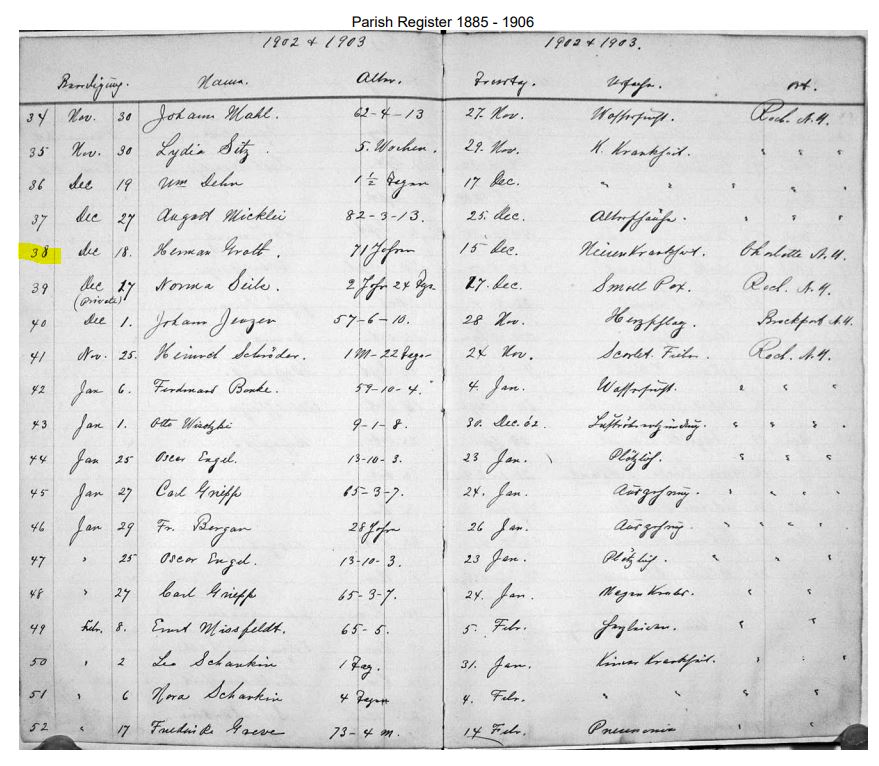 Parish Register 1885 - 1906
1902 & 1903 1902 & 1903.
Beerdigung. Name. Alter. Todestag. Ursache. Ort.
34 Nov. 30 Johann Mahl. 62-4-13 27. Nov. Wassersucht. Roch. N.Y.
35 Nov. 30 Lydia Seitz. 5. Wochen. 29. Nov. K. Krankheit. " " "
36 Dec 19 Wm Dehn 1 1/2 Tagen 17 Dec. " " " " "
37 Dec 27 August Micklei 82-3-13. 25. Dec. Altersschwäche. " " "
38 Dec 18. Herman Groth. 71 Jahren 15 Dec. Nierenkrankheit. Charlotte N.Y.
39 Dec 17 Norma Seils. 2 Jahr 24 Tge. 17. Dec. Small Pox. Roch. N.Y.
(Private)
40 Dec 1. Johann Jenzen 57-6-10. 28 Nov. Herzschlag. Brockport N.Y.
41 Nov. 25. Heinrich Schröder. 1 M-22 Tage 24 Nov. Scarlet. Roch. N.Y.
42 Jan 6. Ferdinand Banke. 59-10-4. 4. Jan. Wassersucht. " " "
43 Jan 1. Otto 9-1-8. 30. Dec. 02. Luftröhrentzündung. " " "
44 Jan 25 Oscar Engel. 13-10-3. 23 Jan. Plötzlich. " " "
45 Jan 27 Carl Griepp 65-3-7. 24. Jan. Auszehrung. " " "
46 Jan 29 Fr. Bergan 28 Jahre 26 Jan. Auszehrung. " " "
47 " 25 Oscar Engel. 13-10-3. 23 Jan. Plötzlich. " " "
48 " 27 Carl Griepp 65-3-7. 24. Jan. Magen Krebs. " " "
49 Febr. 8. Ernst Missfeldt. 65-5. 5. Febr. Herzleiden. " " "
50 " 2 Leo Schankin 1 Tag. 31. Jan. Kinder Krankheit. " " "
51 " 6 Nora Schankin 4 Tagen 4. Febr. " " " " "
52 " 17 Greve 73-4 m. 14 Febr. Pneumonia " " "